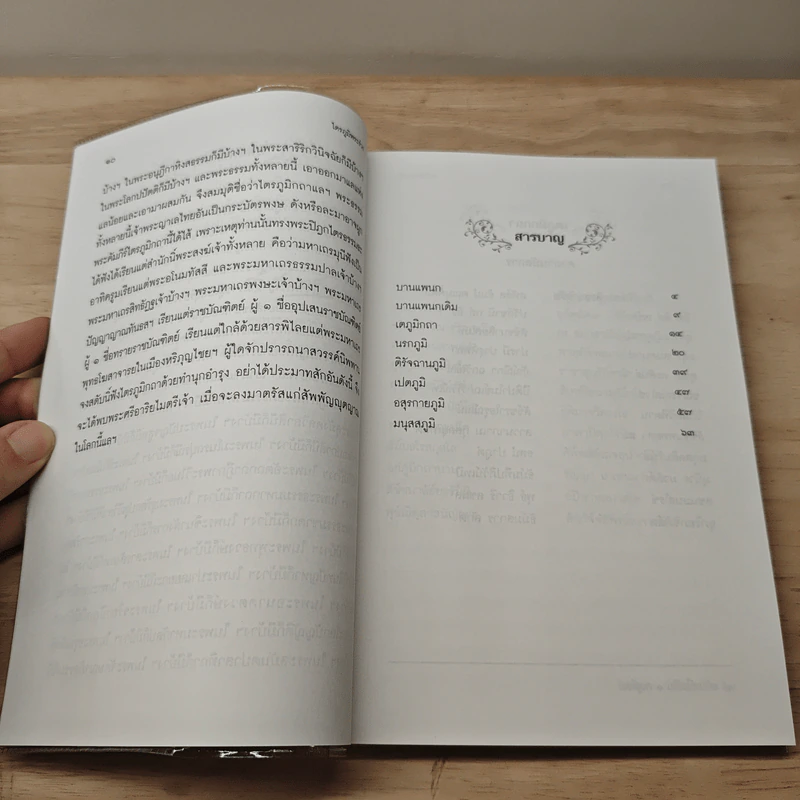 ๒๐
บ้างฯ ในพระอนุฎีกาหิงสธรรมก็มีบ้างฯ ในพระสาริริกวินิจฉัยก็มีบ้างฯ
ในพระโลกปปัตติก็มีบ้างฯ และพระธรรมทั้งหลายนี้ เอาออกมาแลแห่ง
แลน้อยและเอามาผสมกัน จึงสมมุติชื่อว่าไตรภูมิกถาแลฯ พระธรรม
ทั้งหลายนี้เจ้าพระญาเลไทยอันเป็นกระบัตรพงษ ดังหรือละมาอาจ
พระคัมภีร์ไตรภูมิกถานี้ได้ไส้ เพราะเหตุท่านนั้นทรงพระปิฎกไตรธรรม
ได้ฟังได้เรียนแต่สำนักนี้พระสงฆ์เจ้าทั้งหลาย คือว่ามหาเถรมุนีฟังเป็น
อาทิครูมเรียนแต่พระอโนมทัสสี และพระมหาเถรธรรมปาลเจ้าบ้างฯ
พระมหาเถรสิทธัฎฐเจ้าบ้างฯ พระมหาเถรพงษะเจ้าบ้างฯ พระมหาเถร
ปัญญาญาณทันธสฯ เรียนแต่ราชบัณฑิตย์ ผู้ ๑ ชื่ออุปเสนราชบัณฑิตย์
ผู้ ๑ ชื่อทรายราชบัณฑิตย์ เรียนแต่ไกล้ด้วยสารพิไลยแต่พระมหาเถร
พุทธโฆสาจารยในเมืองหริภุญไชยฯ ผู้ใดจักปรารถนาสวรรค์นิพพาน
จงสดับนี้ฟังไตรภูมิกถาด้วยทำนุกอำรุง อย่าได้ประมาทสักอันดังนี้ จึง
จะได้พบพระศรีอาริยไมตรีเจ้า เมื่อจะลงมาตรัสแก่สัพพัญญุตญาณ
ในโลกนี้แลฯ
สารบาญ
บานแพนก ๔
บานแพนกเดิม ๙
เตภูมิกถา ๑๔
นรกภูมิ ๒๐
ดิรัจฉานภูมิ ๓๙
เปตภูมิ ๔๗
อสุรกายภูมิ ๕๗
มนุสสภูมิ ๖๓